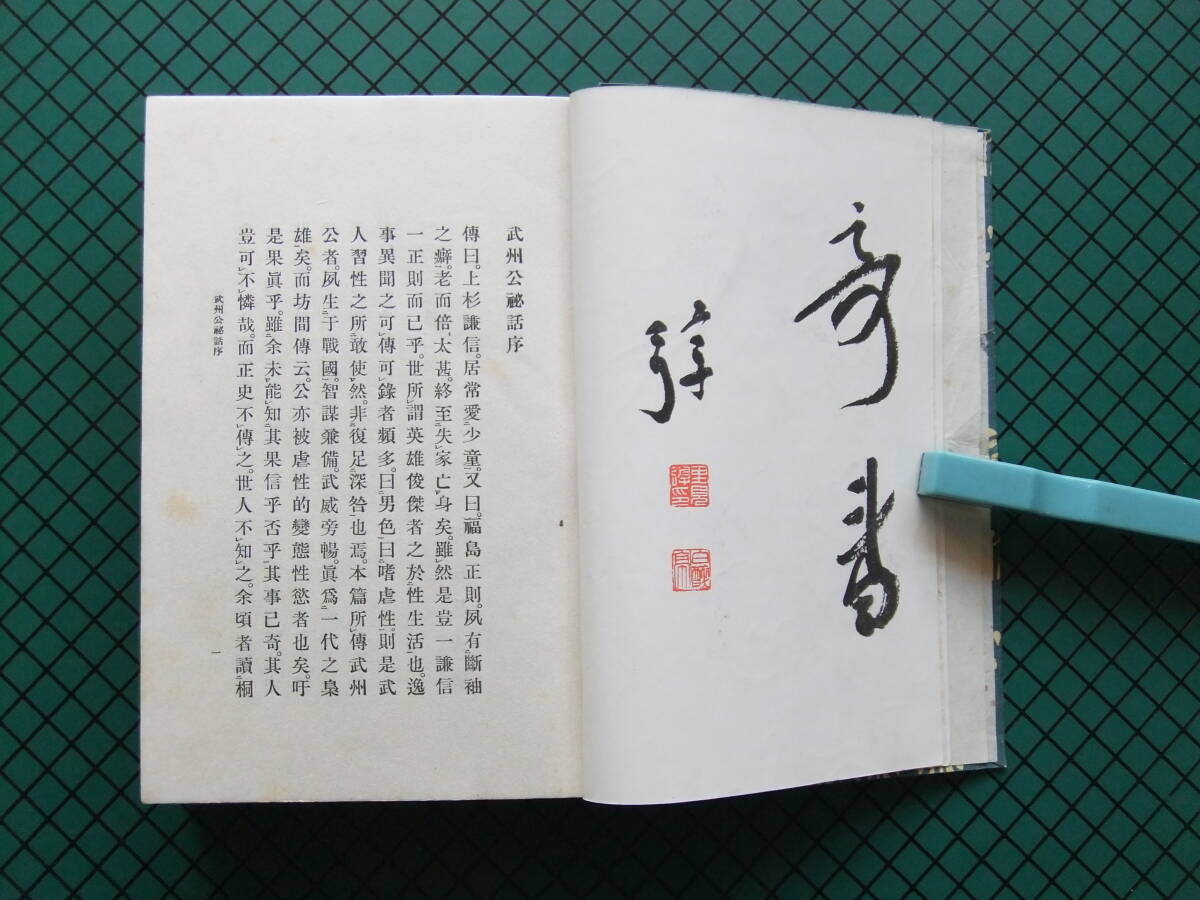 奇書
弴
里見弴印
武州公祕話序
傳曰。上杉謙信。居常愛少童。又曰。福島正則。夙有斷袖
之癖。老而倍太甚。終至失家亡身矣。雖然是豈一謙信
一正則而已乎。世所謂英雄俊傑者之於性生活也。逸
事異聞之可傳可錄者頗多。曰男色曰嗜虐性。則是武
人習性之所敢使然。非復足深咎也焉。本篇所傳武州
公者。夙生于戰國。智謀兼備。武威旁暢。眞爲一代之梟
雄矣。而坊間傳云。公亦被虐性的變態性慾者也矣。吁
是果眞乎。雖余未能知其果信乎否乎。其事已奇。其人
豈可不憐哉。而正史不傳之。世人不知之。余頃者讀桐
武州公祕話序
一